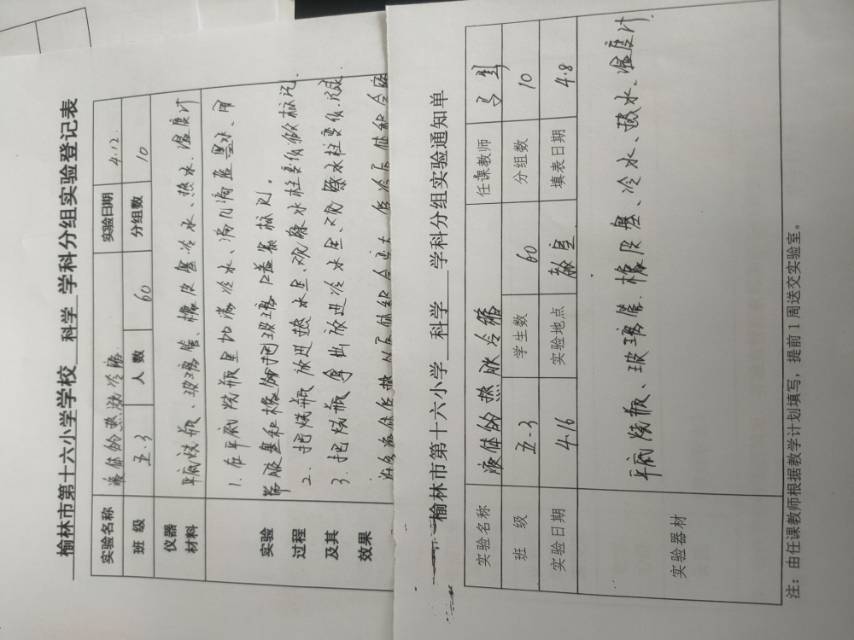 榆林市第十六小学学校 科学 学科分组实验登记表
实验名称 液体的热胀冷缩 实验日期 4.12
班级 五.3 人数 60 分组数 10
仪器材料 平底烧瓶、玻璃管、橡皮塞冷水、热水、温度计
实验过程及其效果
1. 在平底烧瓶里加满冷水、滴几滴蓝墨水、用
2. 把烧瓶放进热水里、观察水柱变化做标记、
3. 把烧瓶拿出放进冷水里、观察水柱变化
榆林市第十六小学 科学 学科分组实验通知单
实验名称 液体的热胀冷缩 任课教师
班级 五.3 学生数 60 分组数 10
实验日期 4.16 实验地点 填表日期 4.8
实验器材 平底烧瓶、玻璃管、橡皮塞、冷水、热水、温度计
注：由任课教师根据教学计划填写，提前1周送交实验室。